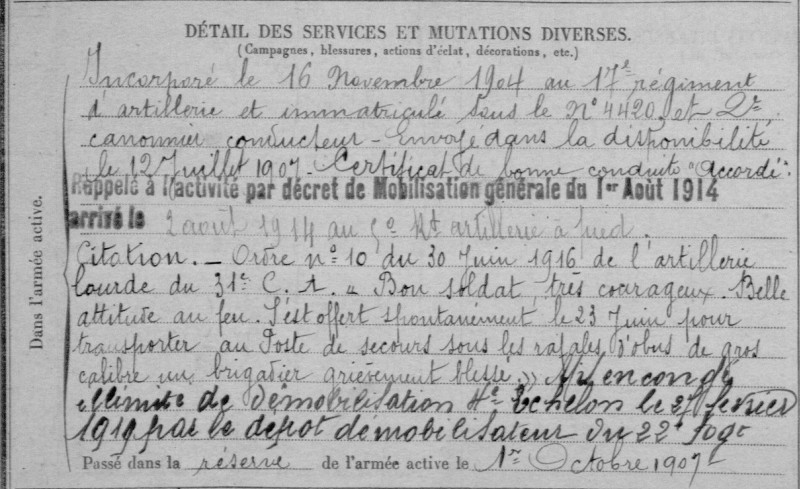 DÉTAIL DES SERVICES ET MUTATIONS DIVERSES.
(Campagnes, blessures, actions d'éclat, décorations, etc.)
Incorporé le 16 Novembre 1904 au 17e régiment
d'artillerie et immatriculé sous le N° 4420 et 2e
canonnier conducteur – Envoyé dans la disponibilité
le 12 Juillet 1907 – Certificat de bonne conduite "Accordé".
Rappelé à l'activité par décret de Mobilisation générale du 1er Août 1914
arrivé le 2 août 1914 au 5e Rt artillerie à pied.
Citation. – Ordre n° 10 du 30 Juin 1916 de l'artillerie
lourde du 31e C. A. « Bon soldat, très courageux. Belle
attitude au feu. S'est offert spontanement le 23 Juin pour
transporter au Poste de secours sous les rafales d'obus de gros
calibre un brigadier grièvement blessé » en congé
illimité de démobilisation 4e Echelon le février
1919 par le dépot démobilisateur du 22e
Passé dans la réserve de l'armée active le 1er Octobre 1907
Dans l'armée active.